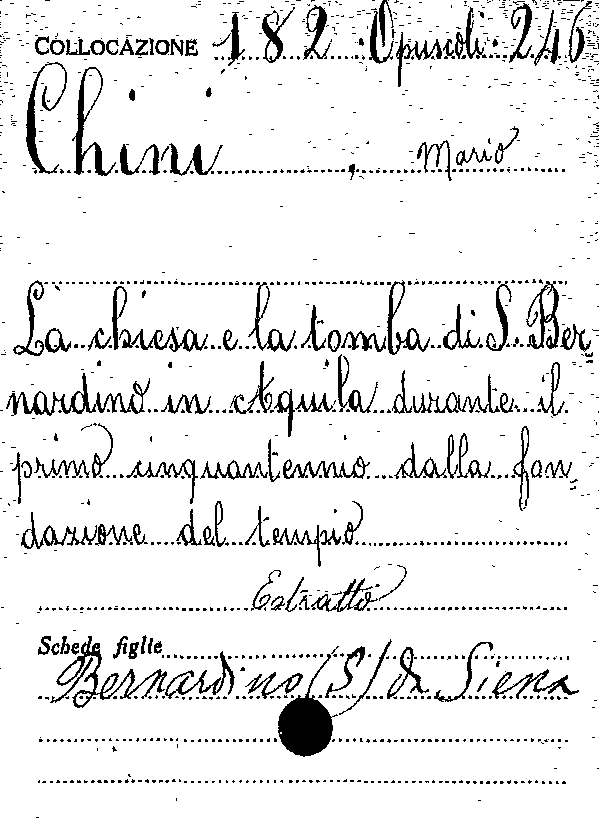 COLLOCAZIONE 182 . Opuscoli . 246
Chini , Mario
La chiesa e la tomba di S. Ber=
nardino in Aquila durante il
primo cinquantennio dalla fon=
dazione del tempio
Estratto
Schede figlie
Bernardino (S) da Siena